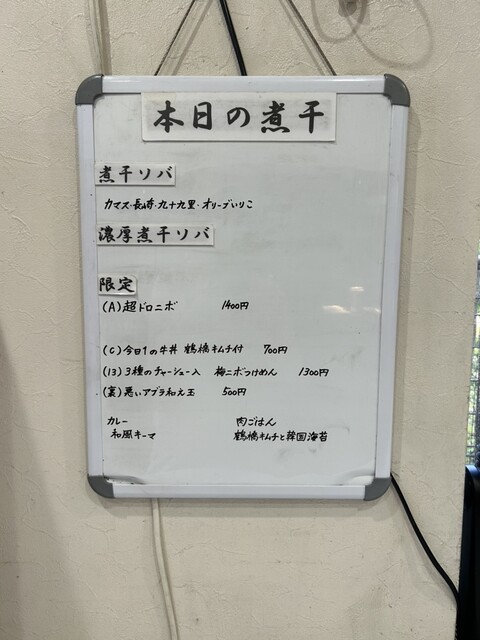 本日の煮干
煮干ソバ
カマス・長崎・九十九里・オリーブいりこ
濃厚煮干ソバ
限定
(A)超ドロニボ 1400円
(C)今日1の牛丼 鶴橋キムチ付 700円
(13)3種のチャーシュー入 梅ニボつけめん 1300円
(裏)悪いアブラ和え玉 500円
カレー 肉ごはん
和風キーマ 鶴橋キムチと韓国海苔